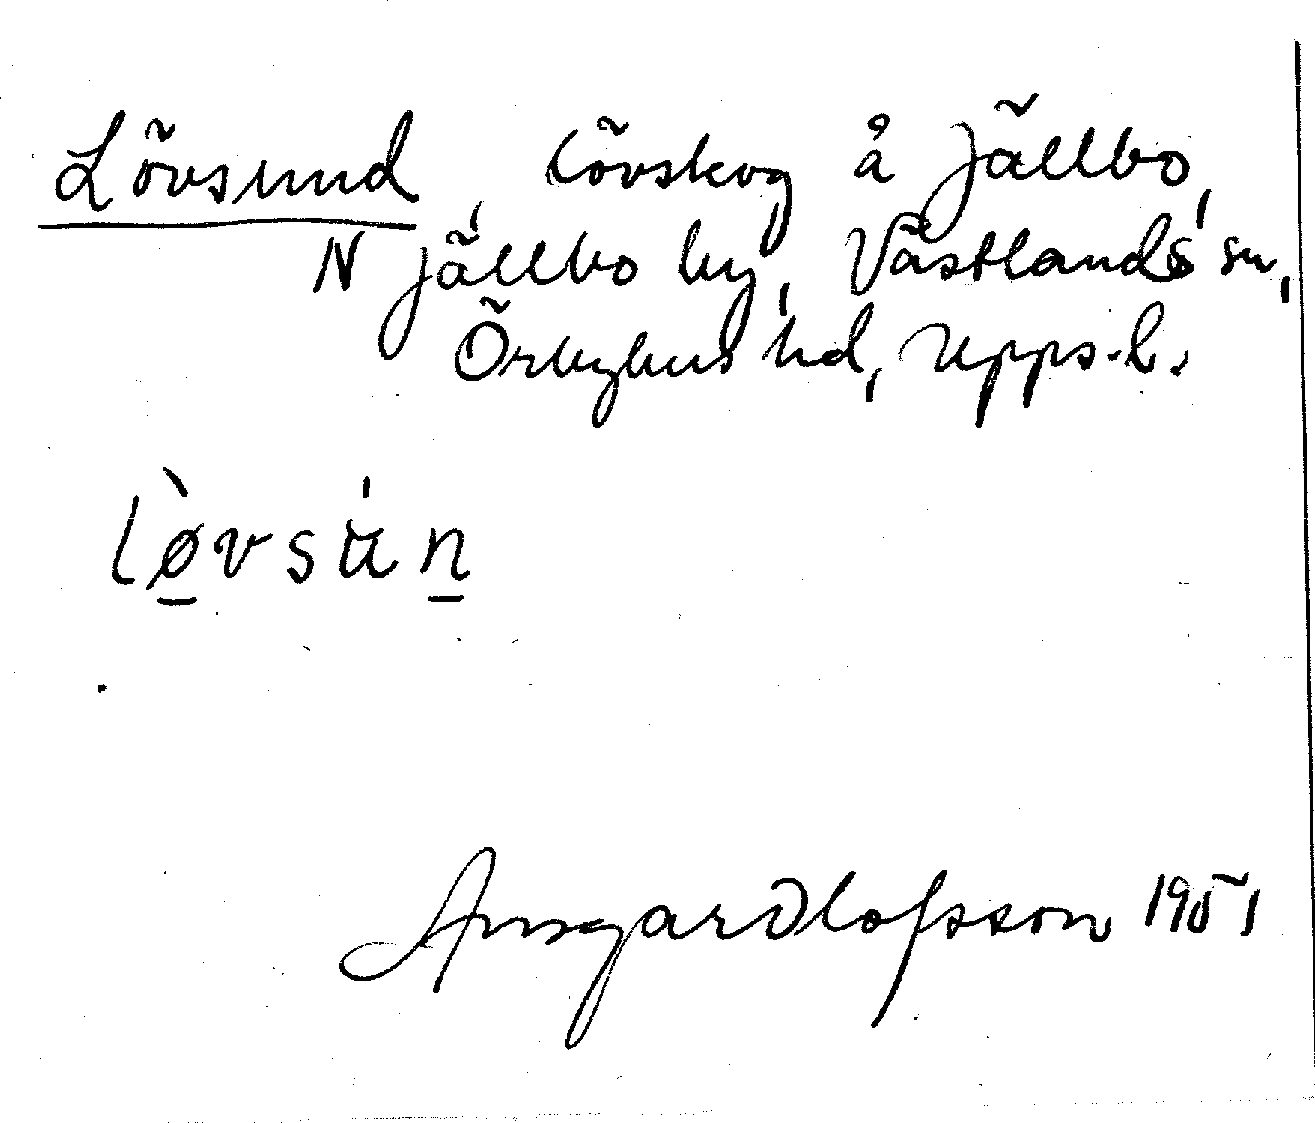 Lövsund, lövskog å Jällbo,
N Jällbo by, Västlands sn,
Örbyhus hd, Upps. l.
lø̱̀vsʉ̍ṉ
Ansgar Olofsson 1951